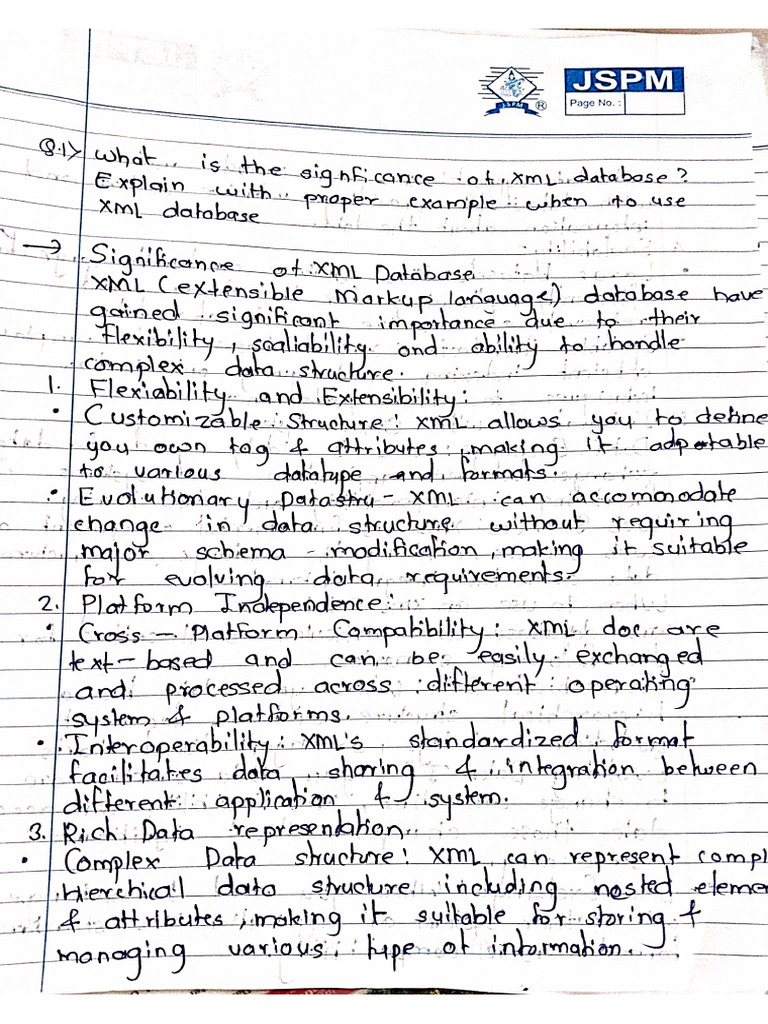 JSPM
JSPM ®
Page No. :
Q.1> What is the signficance of XML database?
Explain with proper example when to use
XML database
→ Significance of XML Database
XML (extensible Markup language) database have
gained significant importance due to their
flexibility, scaliability and ability to handle
complex data structure.
1. Flexiability and Extensibility:
• Customizable Structure: XML allows you to define
you own tag & attributes, making it adpotable
to various datatype and formats.
• Evolutionary Datastru - XML can accomodate
change in data structure without requiring
major schema modification, making it suitable
for evolving data requirements.
2. Platform Independence:
• Cross - Platform Compatibility: XML doc are
text-based and can be easily exchanged
and processed across different operating
system & platforms.
• Interoperability: XML's standardized format
facilitates data sharing & integration between
different application & system.
3. Rich Data representation
• Complex Data structure: XML can represent compl
Hierchical data structure including nested elemen
& attributes, making it suitable for storing &
managing various type of information.